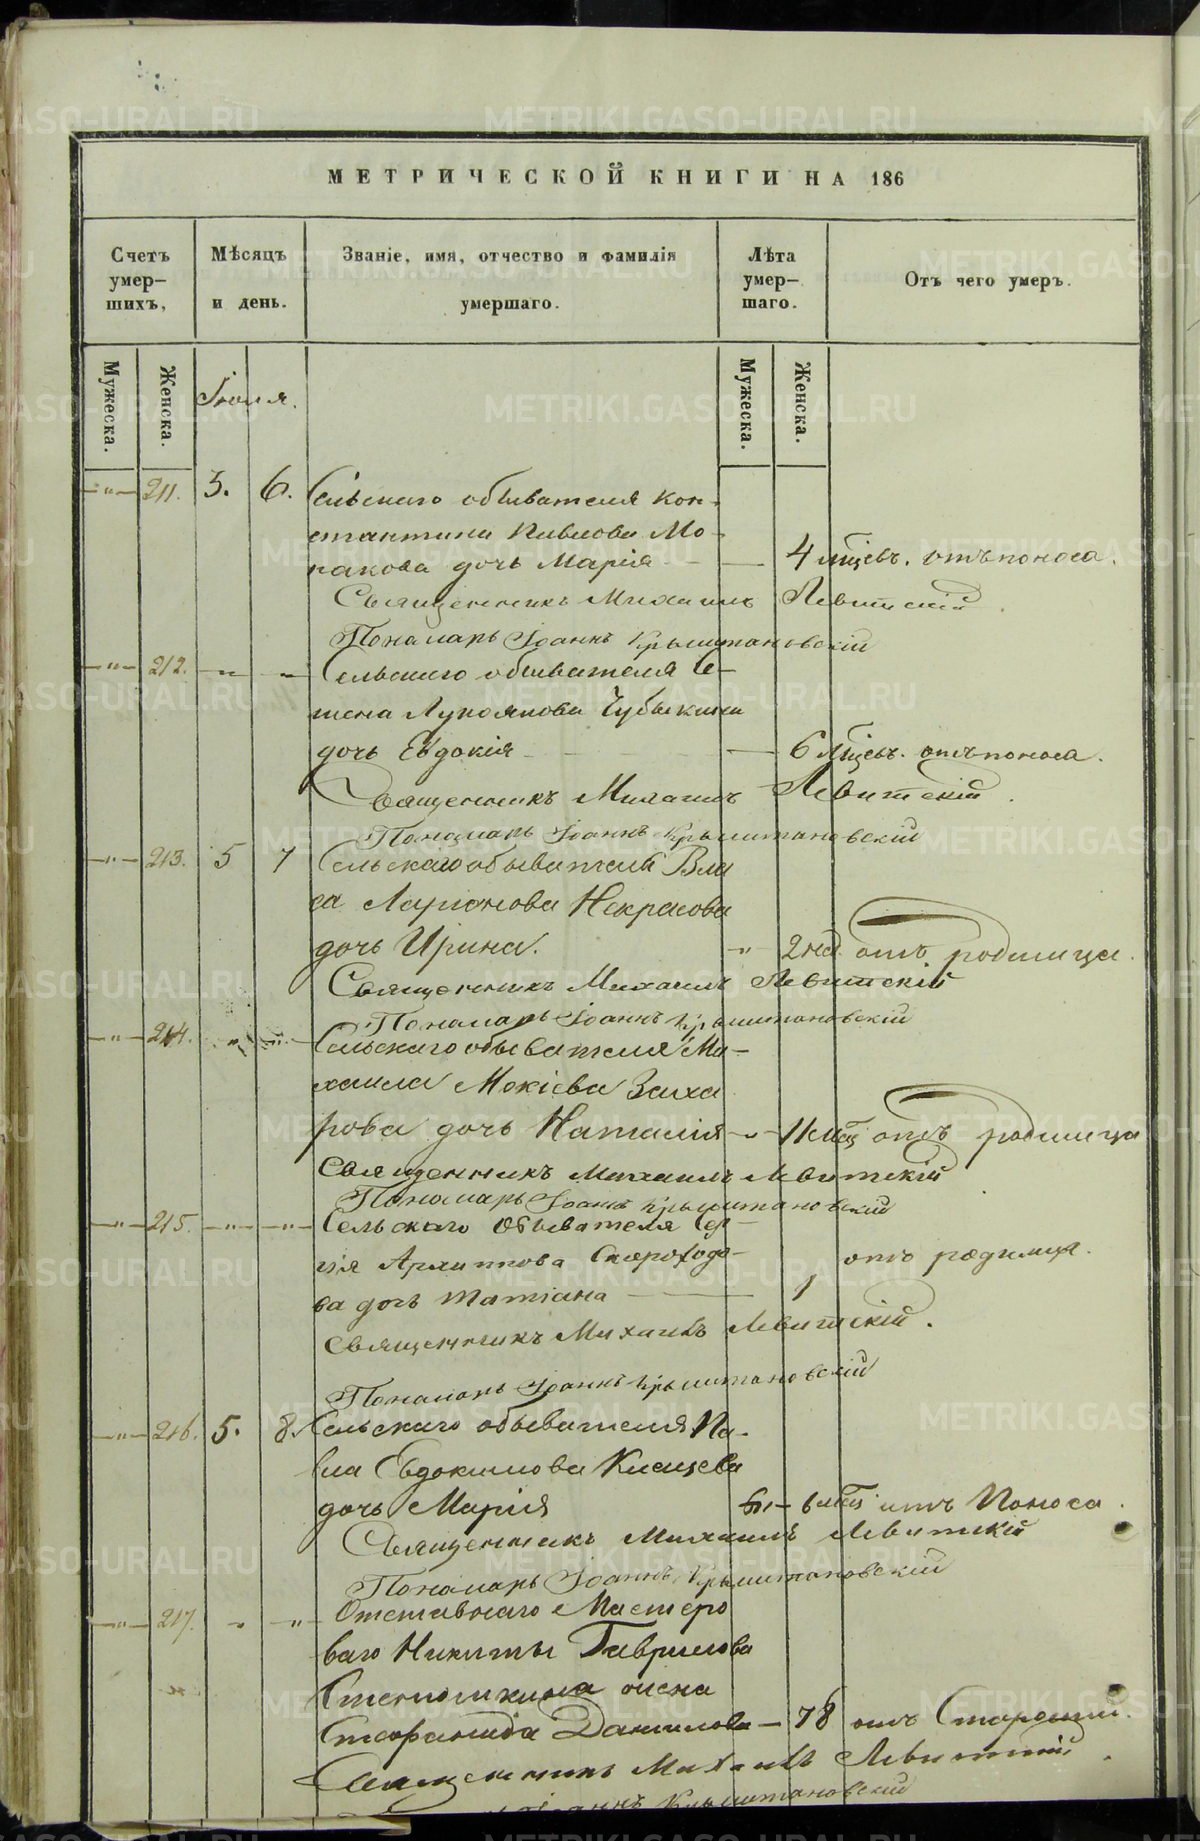 МЕТРИЧЕСКОЙ КНИГИ НА 186
Счетъ умер-шихъ,
Мѣсяцъ и день.
Званіе, имя, отчество и фамилія умершаго.
Лѣта умер-шаго.
Отъ чего умеръ.
Мужеска.
Женска.
Іюля.
Мужеска.
Женска.
211. 5. 6. Сельскаго обывателя Кон-
стантина Павлова
дочь Марія 4 мѣсвъ. отъ поноса.
Священникъ Михаилъ Левитскій
Пономарь Іоаннъ Крыштановскій
212. Сельскаго обывателя Се-
мена Лукоянова Чубыкина
дочь Евдокія 6 мѣсвъ. отъ поноса.
Священникъ Михаилъ Левитскій.
Пономарь Іоаннъ Крыштановскій
213. 5 7 Сельскаго обывателя Вла
са Ларіонова Некрасова
дочь Ирина. 2 нед. отъ родимца.
Священникъ Михаилъ Левитскій
Пономарь Іоаннъ Крыштановскій
214. Сельскаго обывателя Ми-
хаила Мокіева Заха
рова дочь Наталія отъ родимца
Священникъ Михаилъ Левитскій
Пономарь Іоаннъ Крыштановскій
215. Сельскаго обывателя Сер-
гія Архиппова Скороходо-
отъ родимца.
ва дочь Татіана 1
Священникъ Михаилъ Левитскій.
Пономарь Іоаннъ Крыштановскій
216. 5. 8. Сельскаго обывателя Па-
вла Евдокимова
дочь Марія 6 мѣс отъ Поноса.
Священникъ Михаилъ Левитскій
Пономарь Іоаннъ Крыштановскій
217. Отставнаго Мастеро
ваго Никиты Гаврилова
жена
Стефанида Данилова 78 отъ Старости.
Священникъ Михаилъ Левитскій.
Іоаннъ Крыштановскій
METRIKI.GASO-URAL.RU